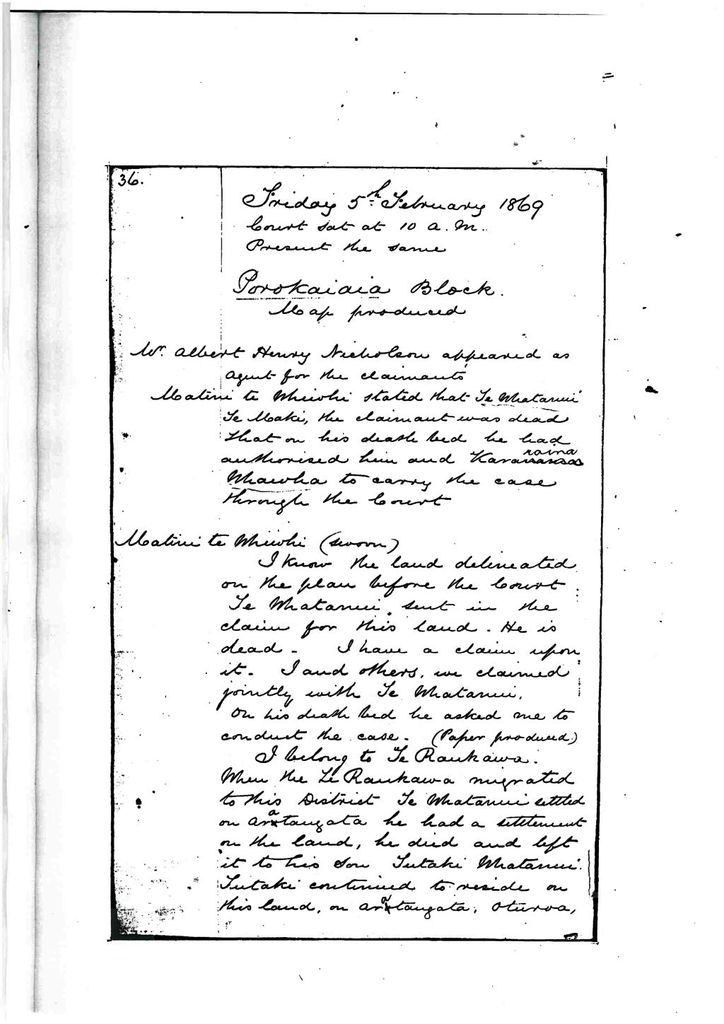 36.
Friday 5th February 1869
Court sat at 10 a.m.
Present the same
Porokaiaia Block.
Map produced
Mr. Albert Henry Nicholson appeared as
agent for the claimants
Matini te Whiwhi stated that Te Whatanui
Te Maki, the claimant was dead
that on his death bed he had
authorised him and Kararaina
Whawha to carry the case
through the Court
Matini te Whiwhi (sworn)
I know the land delineated
on the plan before the Court.
Te Whatanui sent in the
claim for this land. He is
dead. I have a claim upon
it. I and others, we claimed
jointly with Te Whatanui.
On his death bed he asked me to
conduct the case. (Paper produced)
I belong to Te Raukawa.
When the Te Raukawa migrated
to this District Te Whatanui settled
on Aratangata he had a settlement
on the land, he died and left
it to his son Tutaki Whatanui.
Tutaki continued to reside on
this land, on Aratangata, Oturoa,